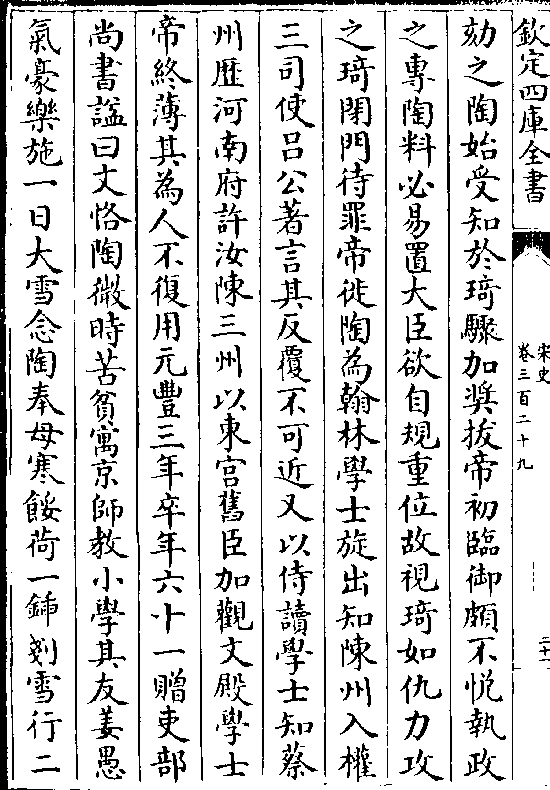 欽定四庫全書
宋史
卷三百二十九
二十一
劾之陶始受知於琦驟加奬拔帝初臨御頗不悦執政
之專陶料必易置大臣欲自規重位故視琦如仇力攻
之琦閉門待罪帝徙陶為翰林學士旋出知陳州入權
三司使吕公著言其反覆不可近又以侍讀學士知蔡
州歴河南府許汝陳三州以東宫舊臣加觀文殿學士
帝終薄其為人不復用元豐三年卒年六十一贈吏部
尚書諡曰文恪陶微時苦貧寓京師教小學其友姜愚
氣豪樂施一日大雪念陶奉母寒餒荷一鍤剗雪行二